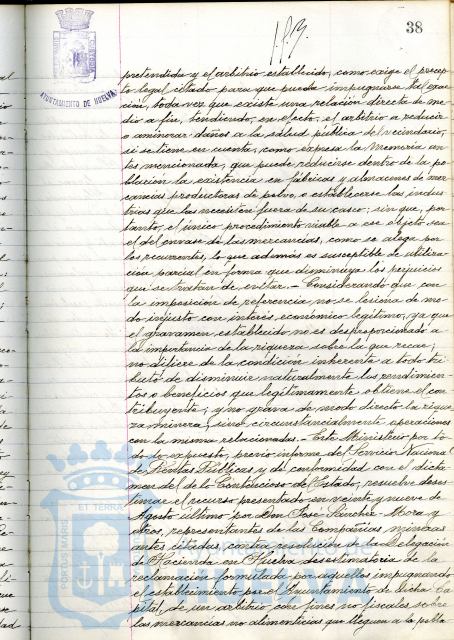 38
AYUNTAMIENTO DE HUELVA
pretendida y el arbitrio establecido, como exige el precep-
to legal citado para que pueda impugnarse tal exac-
ción, toda vez que existe una relación directa de me-
dio a fin, tendiendo, en efecto, el arbitrio a reducir
o aminorar daños a la salud pública del vecindario,
si se tiene en cuenta, como expresa la Memoria an-
tes mencionada, que puede reducirse dentro de la po-
blación la existencia en fábricas y almacenes de mer-
cancías productoras de polvo, o establecerse las indus-
trias que las necesiten fuera de su casco; sin que, por
tanto, el único procedimiento viable a ese objeto sea
el del envase de las mercancías, como se alega por
los recurrentes, lo que además es susceptible de utiliza-
ción parcial en forma que disminuya los perjuicios
que se tratan de evitar.- Considerando que con
la imposición de referencia no se lesiona de mo-
do injusto con interés económico legítimo, ya que
el gravamen establecido no es desproporcionado a
la importancia de la riqueza sobre la que recae;
no difiere de la condición inherente a todo tri-
buto de disminuir naturalmente los rendimien-
tos o beneficios que legítimamente obtiene el con-
tribuyente; y no grava de modo directo la rique-
za minera, sino circunstancialmente operaciones
con la misma relacionadas.- Este Ministerio por to-
do lo expuesto, previo informe del Servicio Nacional
de Rentas Públicas y de conformidad con el dicta-
men del de lo Contencioso del Estado, resuelve deses-
timar el recurso presentado en veinte y nueve de
Agosto último por Don José Sánchez-Mora y
otros, representantes de las Compañías mineras
antes citadas, contra resolución de la Delegación
de Hacienda en Huelva desestimatoria de la
reclamación formulada por aquellos impugnando
el establecimiento por el Ayuntamiento de dicha ca-
pital, de un arbitrio con fines no fiscales sobre
las mercancías no alimenticias que lleguen a la pobla-
PORTUS MARIS ET TERRAE
Ayuntamiento de
HUELVA